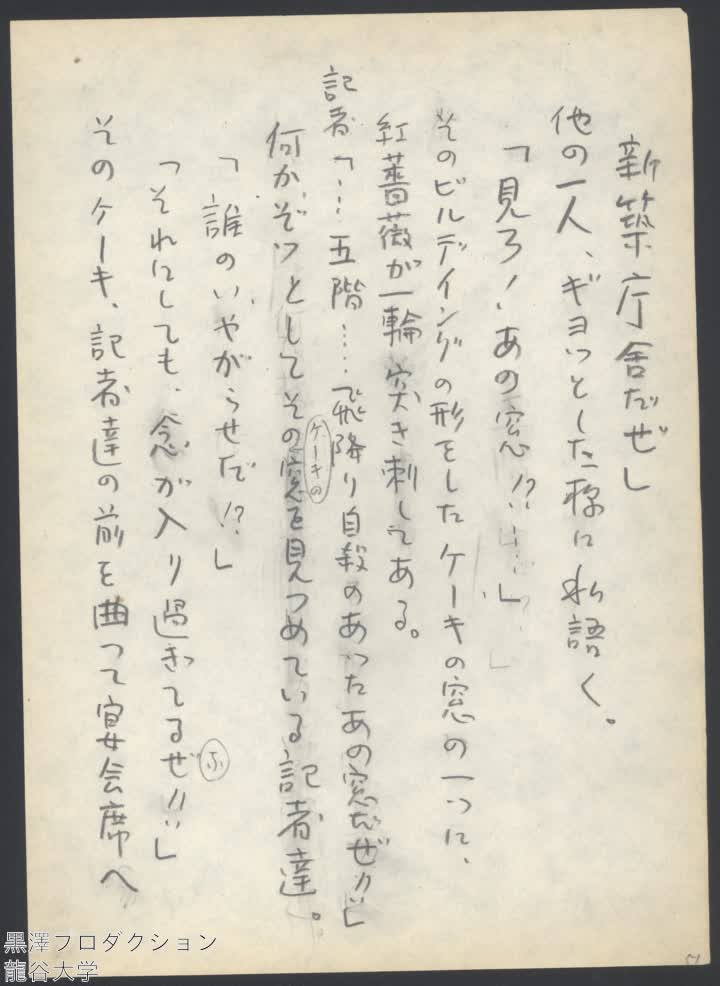 新築庁舎だぜ」
他の一人、ギョッとした様に私語く。
「見ろ！あの窓！？……」
そのビルディングの形をしたケーキの窓の一つに、
紅薔薇が一輪突き刺してある。
記者「…五階……飛降り自殺のあったあの窓だぜ！！…」
何かぞッとしてその窓を見つめている記者達。
ケーキの
「誰のいやがらせだ！？」
「それにしても、念が入り過ぎてるぜ！！…」
そのケーキ、記者達の前を曲って宴会席へ
黒澤プロダクション
龍谷大学